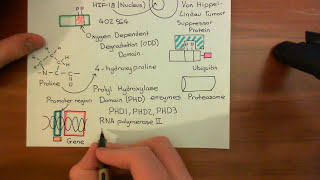 HIF-1β (Nucleus)
402 564
Oxygen Dependent
Degradation (ODD)
Domain
Von Hippel-
Lindau Tumor
Suppressor
Protein
Proline
4-hydroxyproline
Ubiquitin
Prolyl Hydroxylase
Domain (PHD) enzymes
Proteasome
PHD1, PHD2, PHD3
Promoter region
RNA polymerase II
Gene